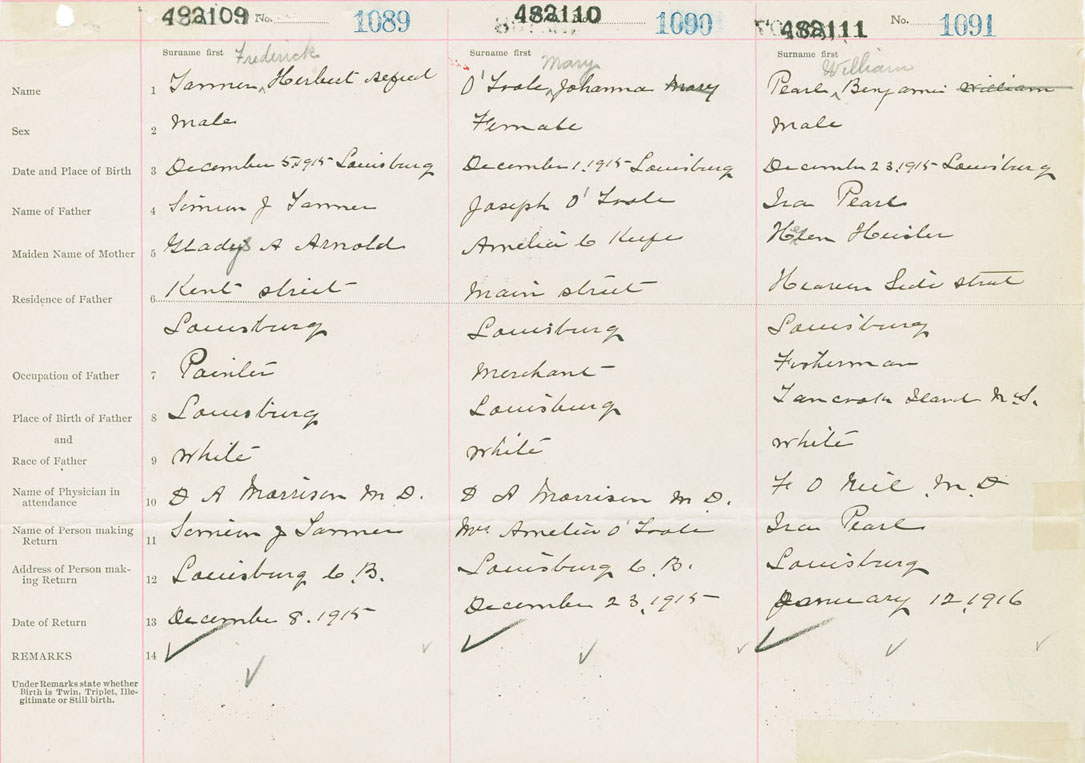 482109 No. 1089 482110 No. 1090 482111 No. 1091
Surname first Frederick Surname first Mary Surname first William
Name 1 Tanner, Herbert O'Toole, Johanna Mary Pearl, Benjamin William
Sex 2 male Female male
Date and Place of Birth 3 December 5, 1915 Louisburg December 1, 1915 Louisburg December 23, 1915 Louisburg
Name of Father 4 Simion J Tanner Joseph O'Toole Ira Pearl
Maiden Name of Mother 5 Gladys A Arnold Amelia C Keefe Helen Heisler
Residence of Father 6 Kent street Main street Havenside street
Louisburg Louisburg Louisburg
Occupation of Father 7 Painter Merchant Fisherman
Place of Birth of Father 8 Louisburg Louisburg Tancook Island N.S.
and
Race of Father 9 white white white
Name of Physician in
attendance 10 D A Morrison M D. D A Morrison M D. F O Neil M D
Name of Person making
Return 11 Simion J Tanner Mrs Amelia O'Toole Ira Pearl
Address of Person mak-
ing Return 12 Louisburg C. B. Louisburg C. B. Louisburg
Date of Return 13 December 8, 1915 December 23, 1915 January 12, 1916
REMARKS 14
Under Remarks state whether
Birth is Twin, Triplet, Ille-
gitimate or Still-birth.